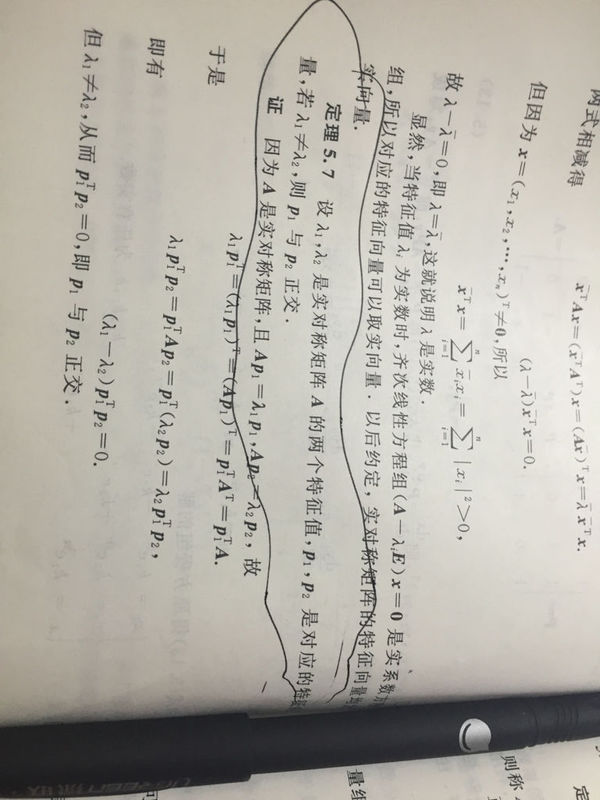 两式相减得
x̄ᵀAx=(x̄ᵀAᵀ)x=(Ax̄)ᵀx=λ̄x̄ᵀx.
(λ-λ̄)x̄ᵀx=0.
但因为 x=(x₁,x₂,…,xₙ)ᵀ≠0,所以
x̄ᵀx=∑ⁿᵢ₌₁x̄ᵢxᵢ=∑ⁿᵢ₌₁|xᵢ|²>0,
故 λ-λ̄=0,即 λ=λ̄,这就说明 λ 是实数.
显然,当特征值 λᵢ 为实数时,齐次线性方程组(A-λᵢE)x=0 是实系数
组,所以对应的特征向量可以取实向量. 以后约定,实对称矩阵的特征向量
实向量.
定理 5.7 设 λ₁,λ₂ 是实对称矩阵 A 的两个特征值,p₁,p₂ 是对应的特
量,若 λ₁≠λ₂,则 p₁ 与 p₂ 正交.
证 因为 A 是实对称矩阵,且 Ap₁=λ₁p₁,Ap₂=λ₂p₂,故
λ₁p₁ᵀ=(λ₁p₁)ᵀ=(Ap₁)ᵀ=p₁ᵀAᵀ=p₁ᵀA.
于是
λ₁p₁ᵀp₂=p₁ᵀAp₂=p₁ᵀ(λ₂p₂)=λ₂p₁ᵀp₂,
即有
(λ₁-λ₂)p₁ᵀp₂=0.
但 λ₁≠λ₂,从而 p₁ᵀp₂=0,即 p₁ 与 p₂ 正交.
定
则称
量组